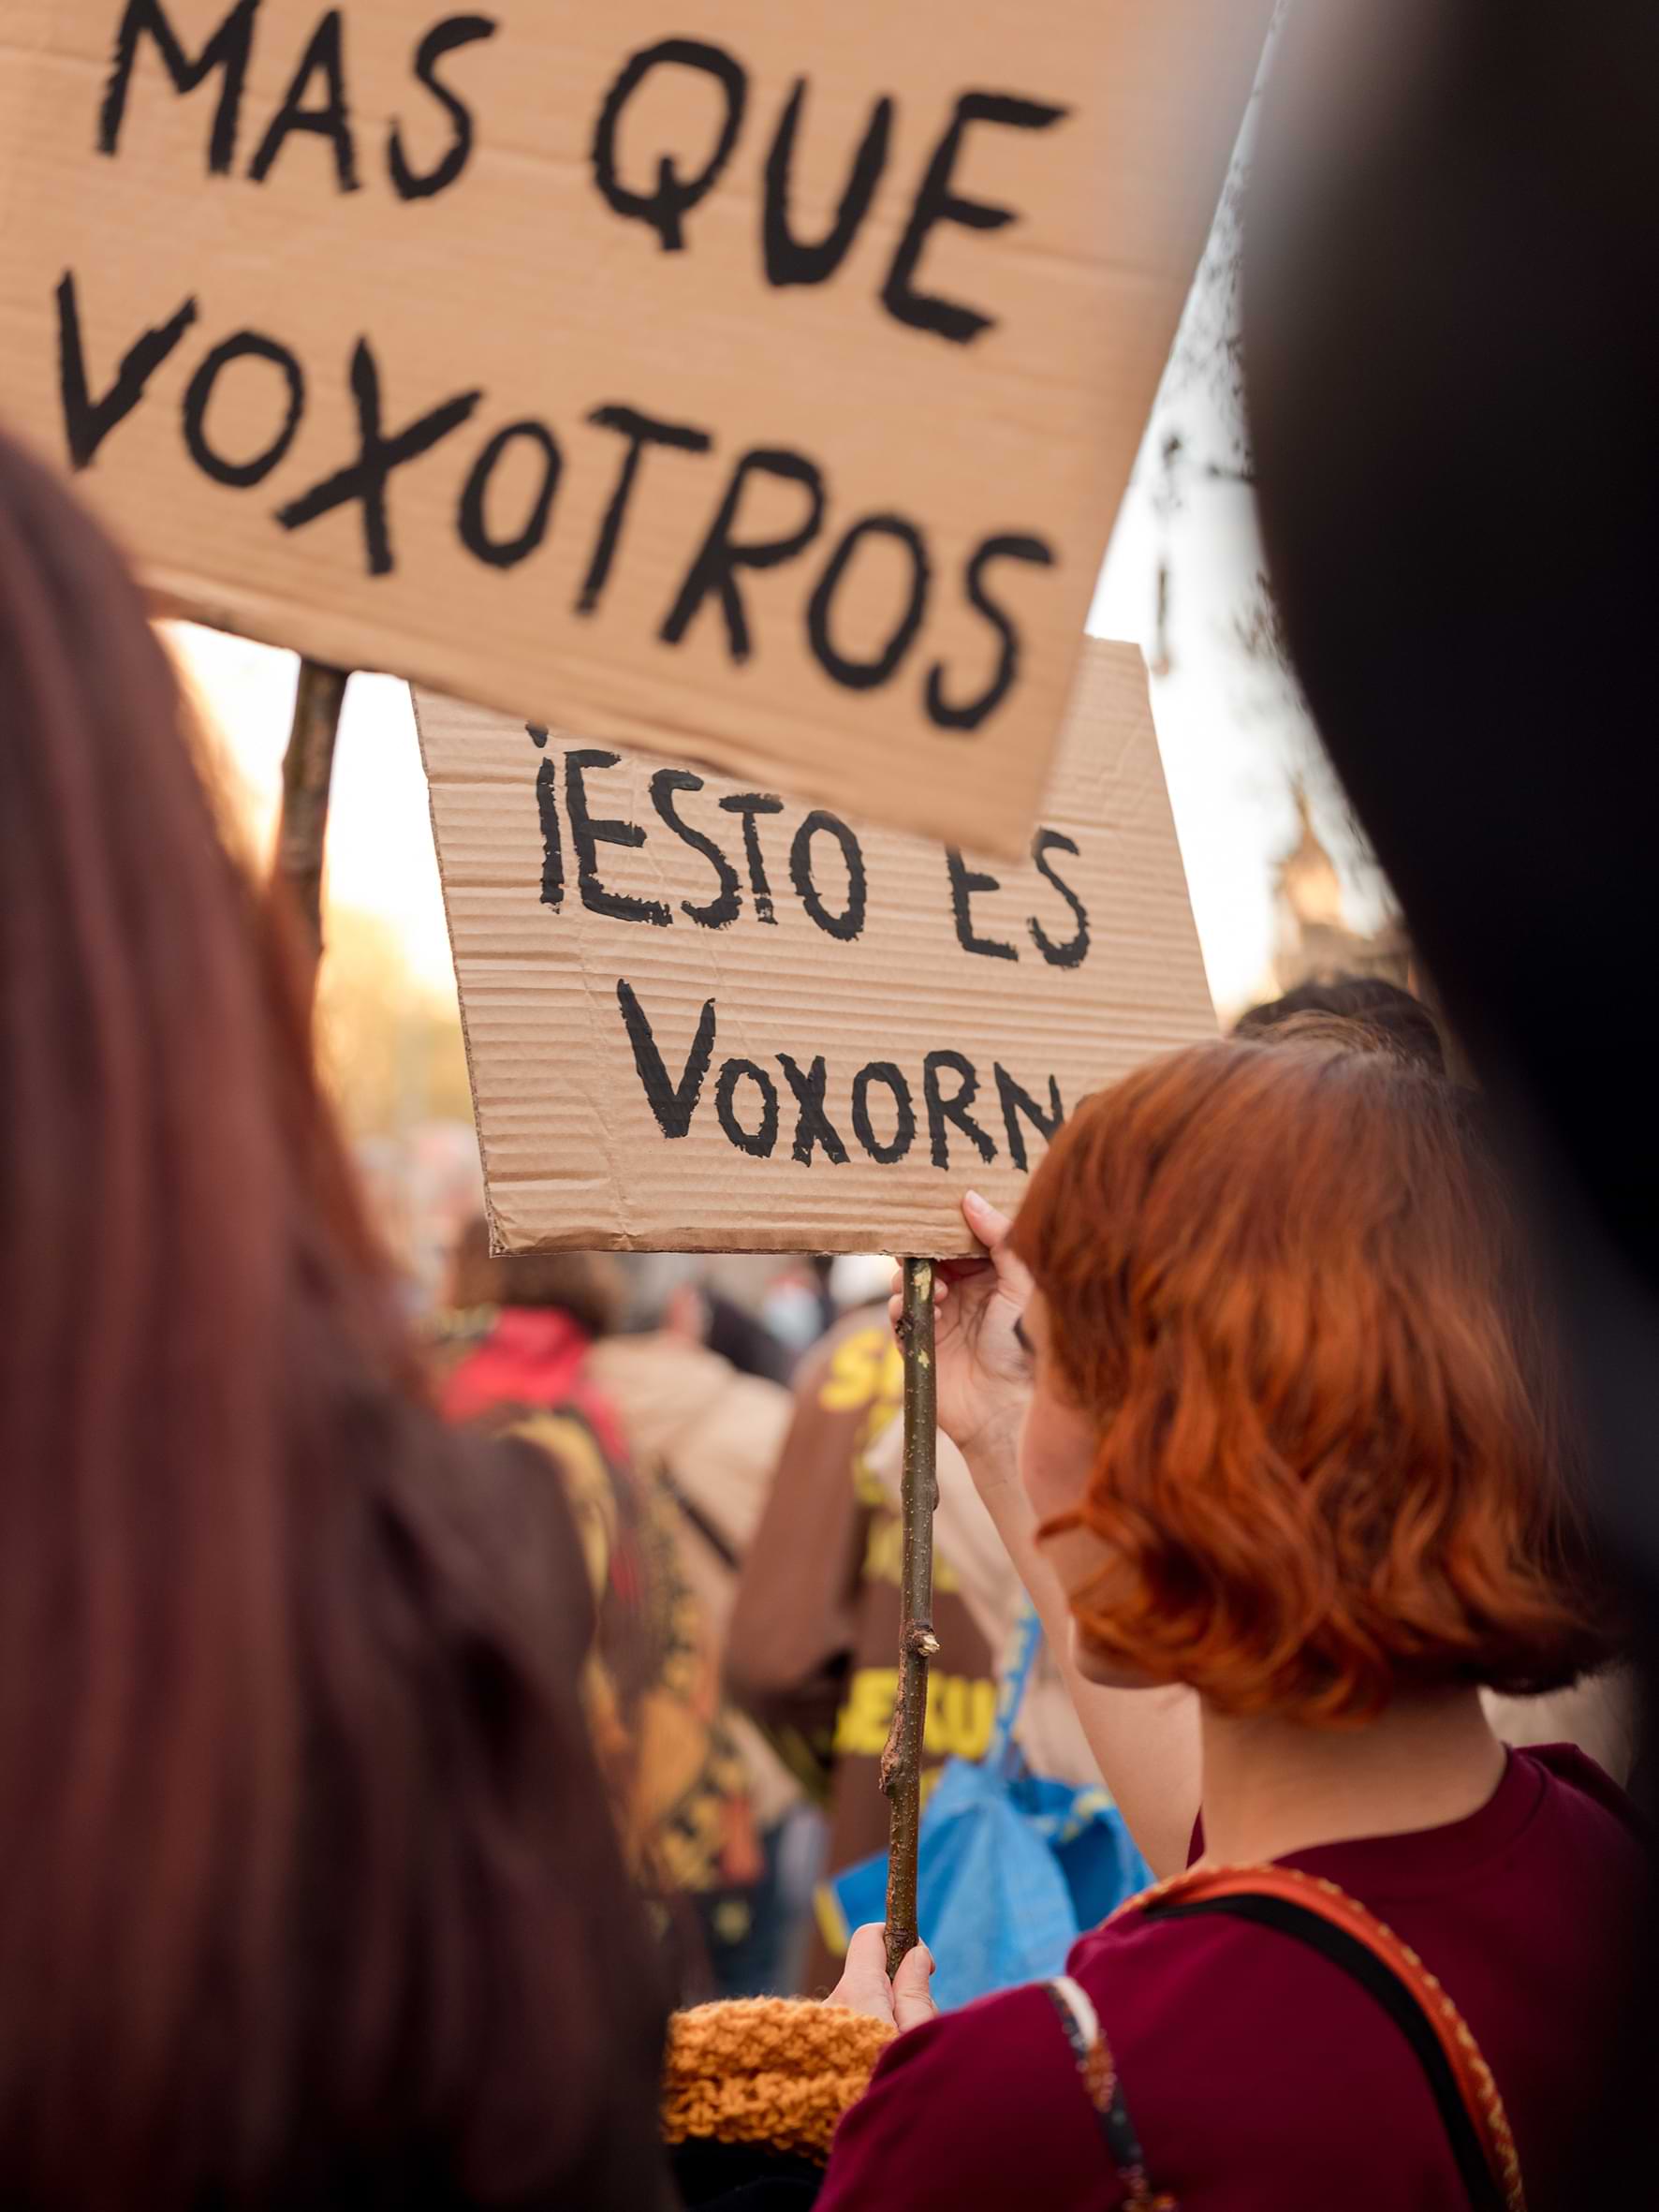 MAS QUE
VOXOTROS
¡ESTO ES
VOXORN